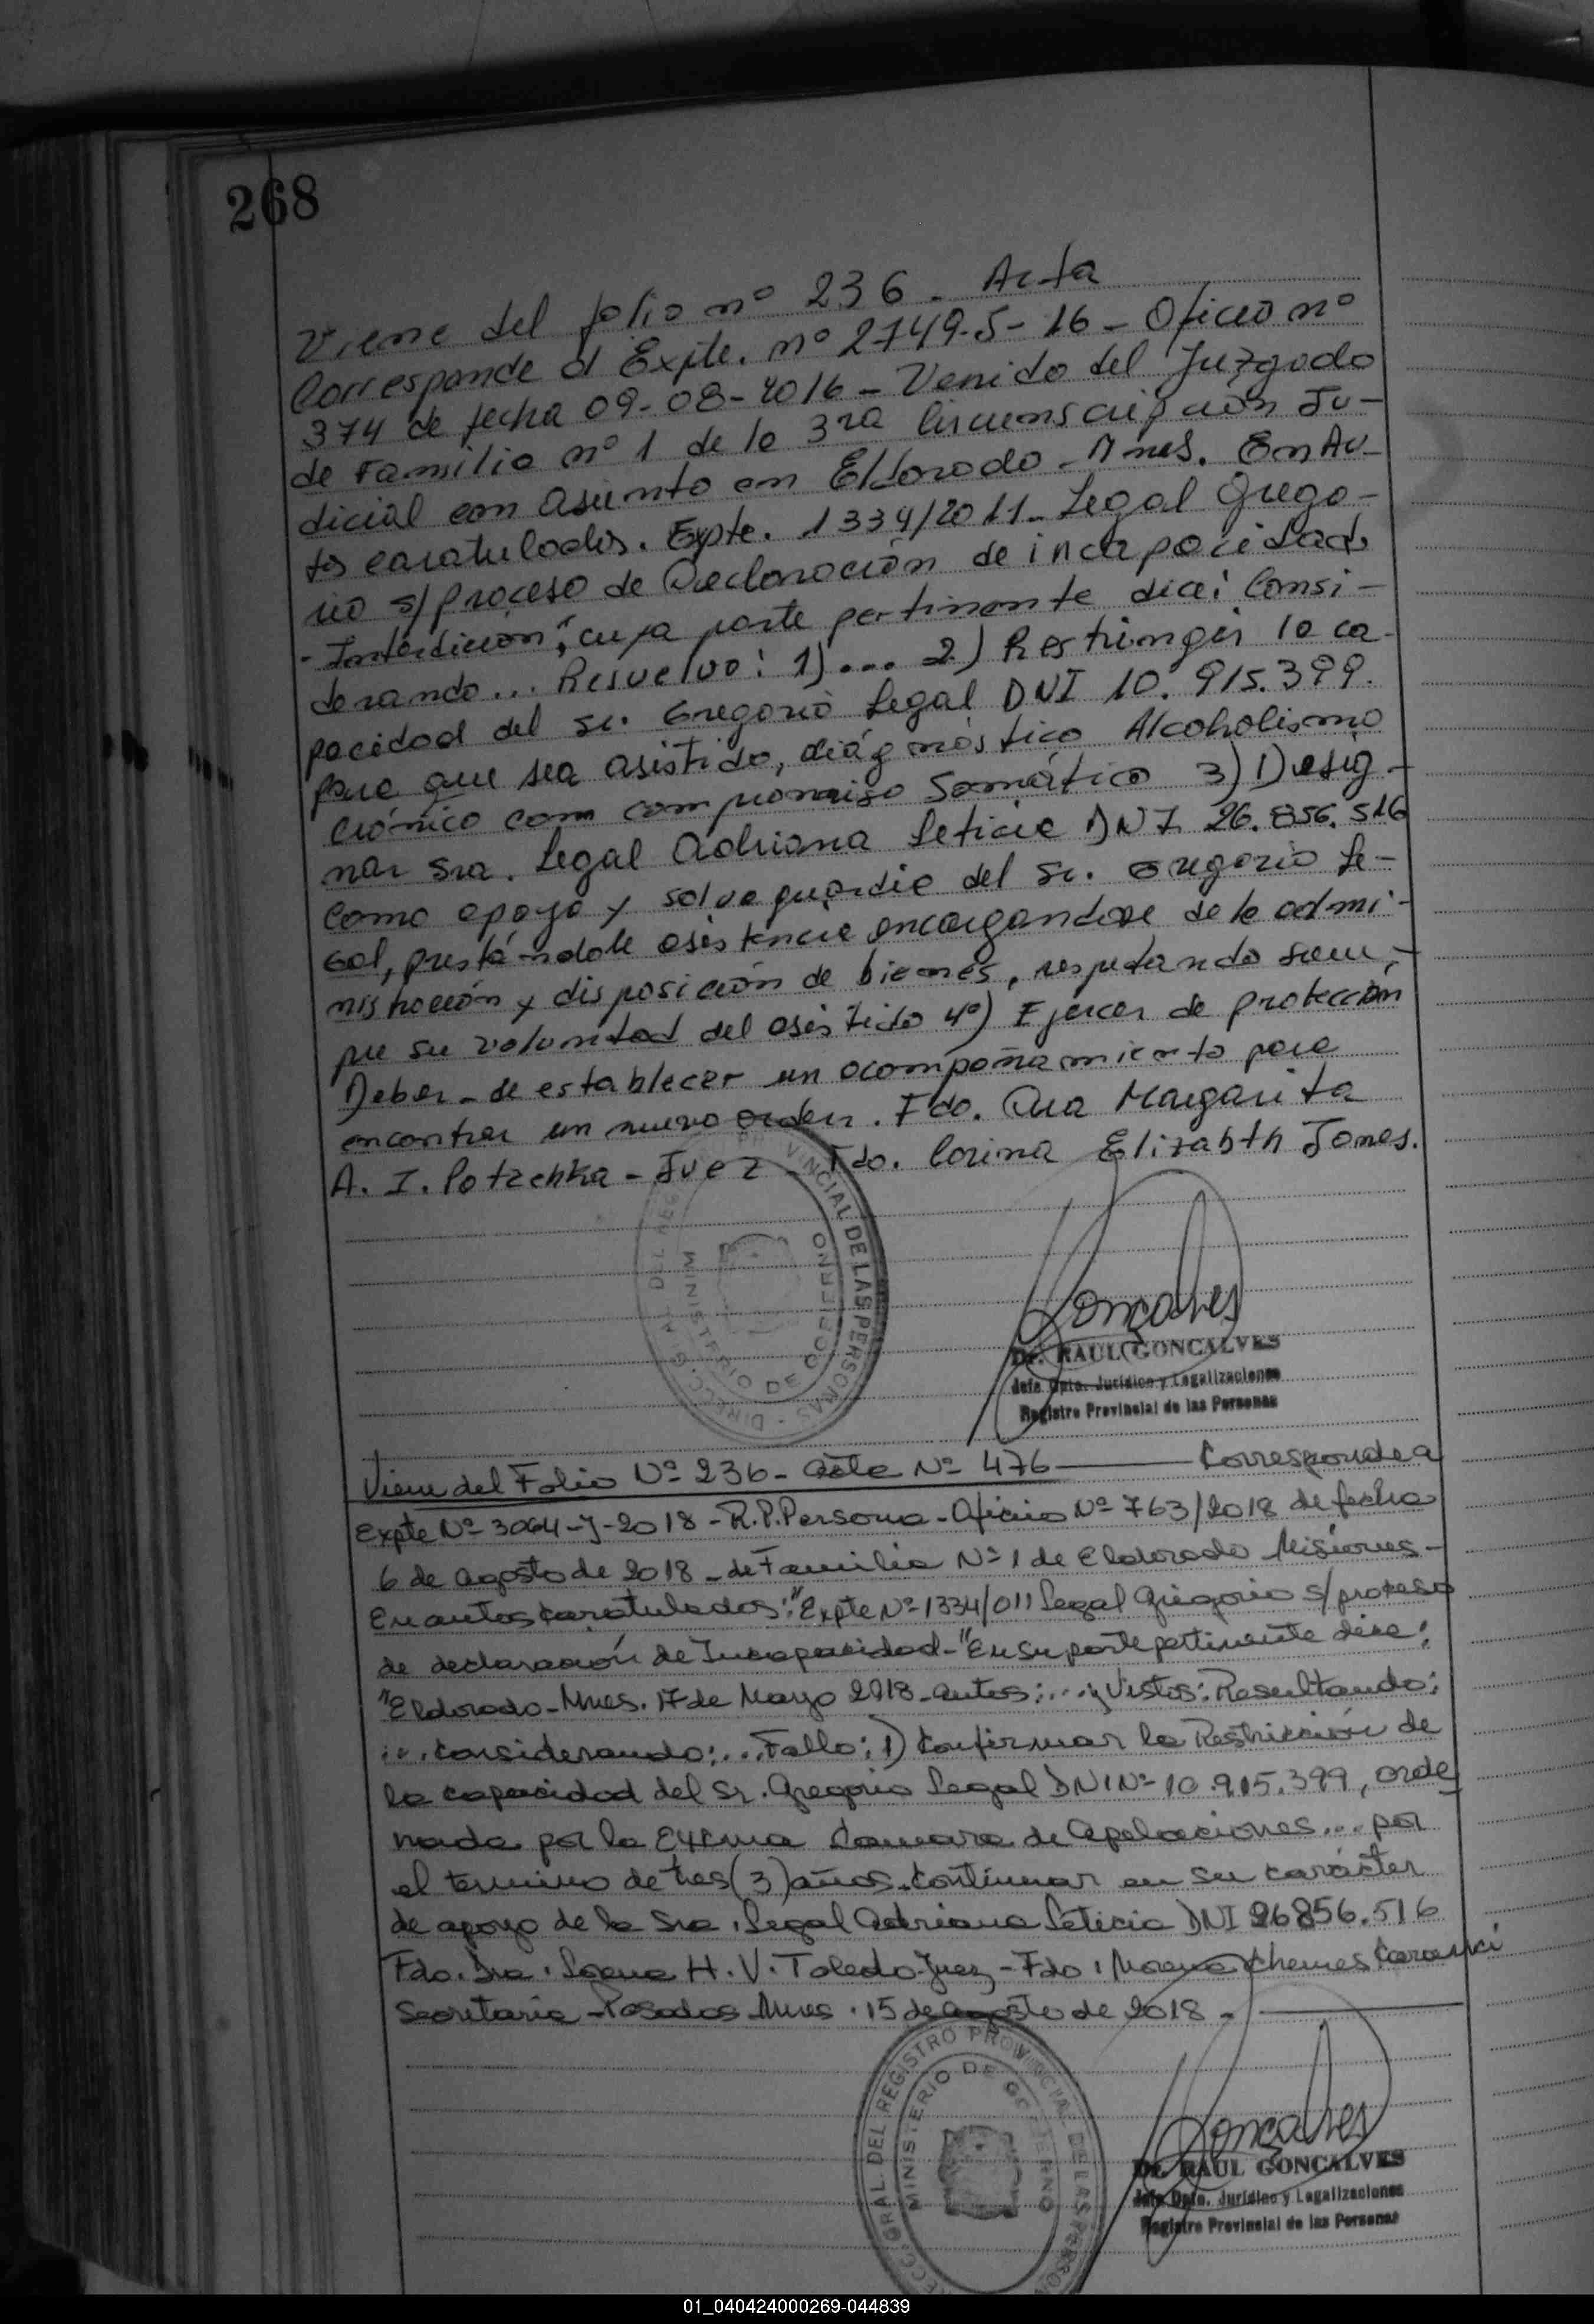 268
Viene del folio nº 236 - Acta
Corresponde al Expte. nº 2749-S-16 - Oficio nº
374 de fecha 09-08-2016 - Venido del Juzgado
de Familia nº 1 de la 3ra Circunscripción Ju-
dicial con asiento en Eldorado - Mnes. En Au-
tos caratulados. Expte. 1334/2011 - Legal Grego-
rio s/ proceso de Declaración de incapacidad
- Interdicción", cuya parte pertinente dice: Consi-
derando... Resuelvo: 1)... 2) Restringir la ca-
pacidad del Sr. Gregorio Legal DNI 10.915.399.
para que sea asistido, diágnóstico Alcoholismo
Crónico con compromiso Somático 3) Desig-
nar Sra. Legal Adriana Leticia DNI 26.856.516
como apoyo y salvaguardia del Sr. Gregorio Le-
gal, prestándole asistencia encargandose de la admi-
nistración y disposición de bienes, respetando siem-
pre su voluntad del asistido 4º) Ejercer de protección
Deber - de establecer un acompañamiento para
encontrar un nuevo orden. Fdo. Dra Margarita
A. I. Potzchka - Juez - Fdo. Corina Elizabth Jones.
DIRECC. GRAL. DEL REGISTRO PROVINCIAL DE LAS PERSONAS
MINISTERIO DE GOBIERNO
Goncalves
Dr. RAUL GONCALVES
Jefe Dpto. Jurídico y Legalizaciones
Registro Provincial de las Personas
Viene del Folio Nº 236 - Acta Nº 476 — Corresponde a
Expte Nº 3064-J-2018 - R.P.Persona - Oficio Nº 763/2018 de fecha
6 de agosto de 2018 - de Familia Nº 1 de Eldorado Misiones -
En autos caratulados: "Expte Nº 1334/011 Legal Gregorio s/ proceso
de declaración de Incapacidad - "En su parte pertinente dice:
"Eldorado - Mnes. 17 de Mayo 2018 - autos: ... y Vistos: Resultando:
... considerando: ... Fallo: 1) Confirmar la Restricción de
la capacidad del Sr. Gregorio Legal DNI Nº 10.915.399, orde
nada por la Excma Camara de Apelaciones ... por
el termino de tres (3) años. Continuar en su carácter
de apoyo de la Sra. Legal Adriana Leticia DNI 26856.516
Fdo. Dra. H. V. Toledo Juez - Fdo: Chemes
Secretaria - Posadas Mnes. 15 de agosto de 2018 -
DIRECC. GRAL. DEL REGISTRO PROVINCIAL DE LAS PERSON
MINISTERIO DE GOBIERNO
Goncalves
Dr. RAUL GONCALVES
Jefe Dpto. Jurídico y Legalizaciones
Registro Provincial de las Personas
01_040424000269-044839